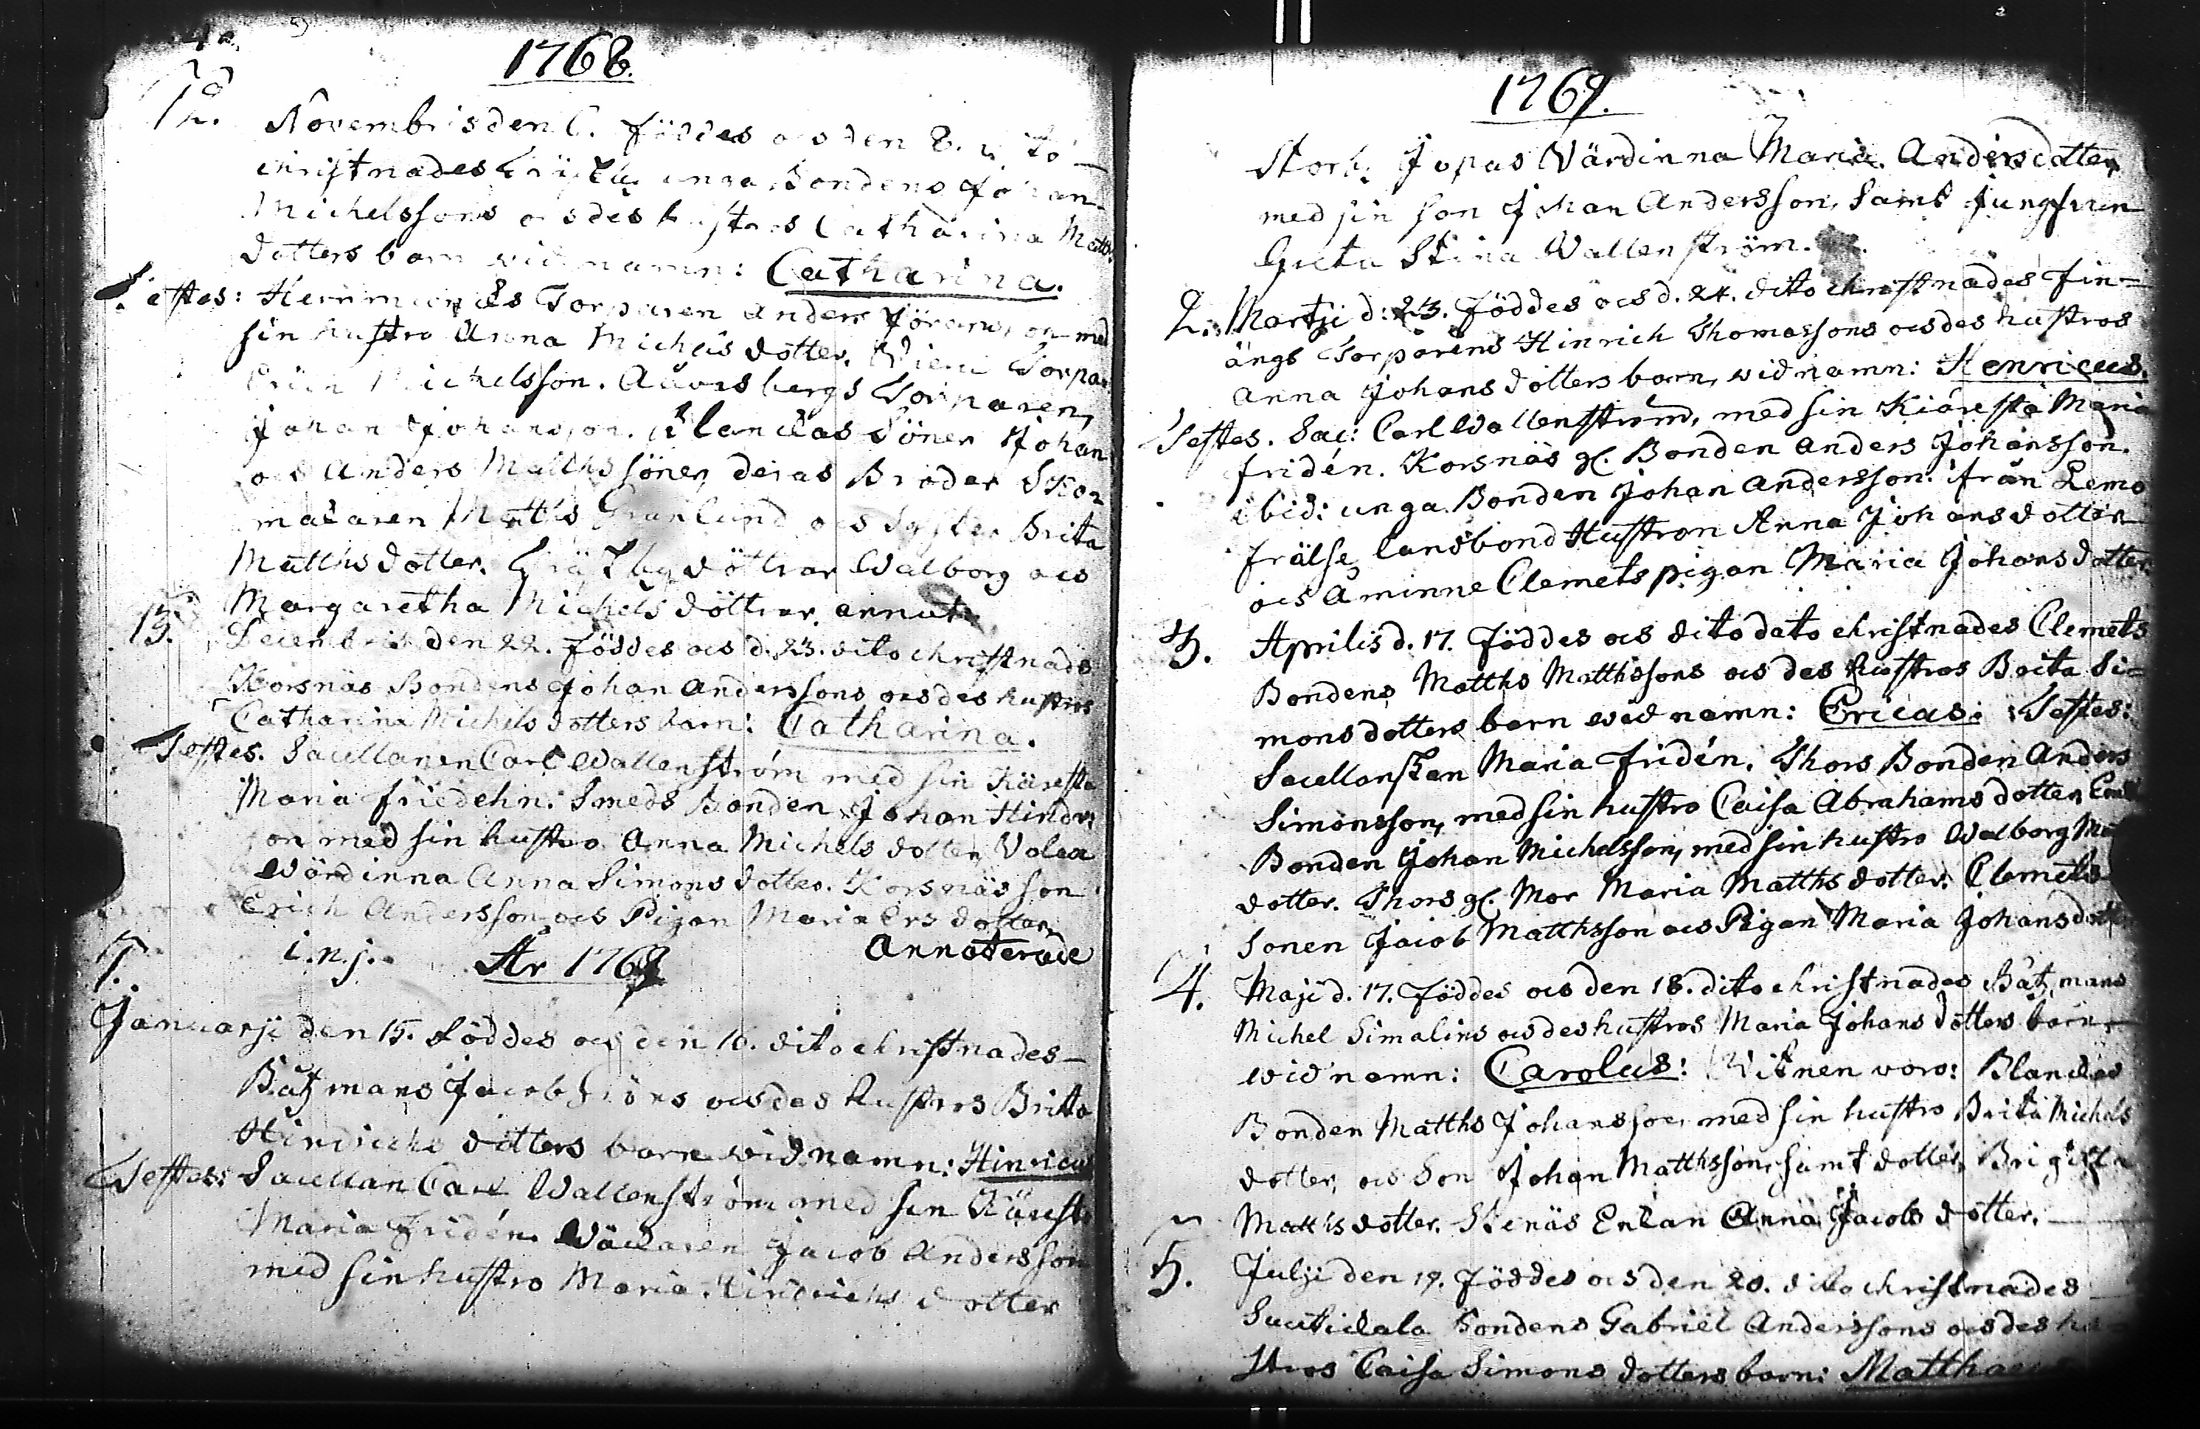 1768.
12. Novembris den 6. föddes ocs den 8. dito
christnades unga Bondens Johan
Michelssons ocs des hustros Catharina Matts
dotters barn vid namn: Catharina.
Testes: Torparen Anders Göransson med
sin hustro Anna Michels dotter. Torpa-
Michelsson. Torparen,
Johan Johansson. Blanckas Söner Johan
ocs Anders Matthssöner deras Broder Skor
makaren Matths Granlund ocs Syster Brita
Matths dotter. döttrar Walborg ocs
Margaretha Michels döttrar. annat.
13. Decembris den 22. föddes ocs d. 23. dito christnads
Korsnäs Bondens Johan Anderssons ocs des hustros
Catharina Michels dotters barn: Catharina.
Testes. Sacellanen Carl Wallenström med sin Käresta
Maria Friedehn. Smeds Bonden Johan Hindr
son med sin hustro Anna Michels dotter, Volea
Wärdinna Anna Simons dotter. Korsnäs son
Erich Andersson, ocs Pigan Maria Ers dotter.
i.n.j. År 1769 Annoterade
1.
Januarji den 15. föddes ocs den 16. dito christnades
Båtzmans Jacob ocs des hustros Brita
Hindrichs dotters barn vid namn: Hinricus
Testes: Sacellan Carl Wallenström med sin Käresta
Maria Fridén. Wäckaren Jacob Andersson
med sin hustro Maria Hindrichs dotter
1769.
Stork. Jopas Värdinna Maria Andersdotter
med sin son Johan Andersson, Samt Jungfrun
Greta Stina Wallenström.
2. Martji d: 23. föddes ocs d. 24. dito christnades Fin=
ängs Torparens Hinrich Thomassons ocs des hustros
Anna Johans dotters barn, vid namn: Henricus.
Testes. Sac: Carl Wallenström, med sin Kiäresta Maria
Fridén. Korsnäs gl. Bonden Anders Johansson.
ibid: unga Bonden Johan Andersson. från Lemo
frälse landbond Hustron Anna Johans dotter
ocs Åminne Clemets pigan Maria Johans dotter.
3. Aprilis d. 17. föddes ocs dito dato christnades Clemets
Bondens Matths Matthssons ocs des hustros Brita Si-
mons dotters barn wid namn: Ericus: Testes:
Sacellanskan Maria Fridén. Thors Bonden Anders
Simonsson, med sin hustro Caisa Abrahams dotter,
Bonden Johan Michelsson, med sin hustro Walborg
dotter. Thors gl. Mor Maria Matths dotter. Clemets
Sonen Jacob Matthsson ocs Pigan Maria Johans dotter
4. Maji d. 17. föddes ocs den 18. dito christnades Båtzmans
Michel Simalins ocs des hustros Maria Johans dotters barn
wid namn: Carolus: Witnen voro: Blanckas
Bonden Matths Johansson, med sin hustro Brita Michels
dotter, ocs Son Johan Matthsson, samt dotter, Brigitta
Matths dotter. Stenäs Enkan Anna Jacobs dotter.
5. Julji den 19. föddes ocs den 20. dito christnades
Bondens Gabriel Anderssons ocs des hu-
stros Caisa Simons dotters barn: Matthaeus